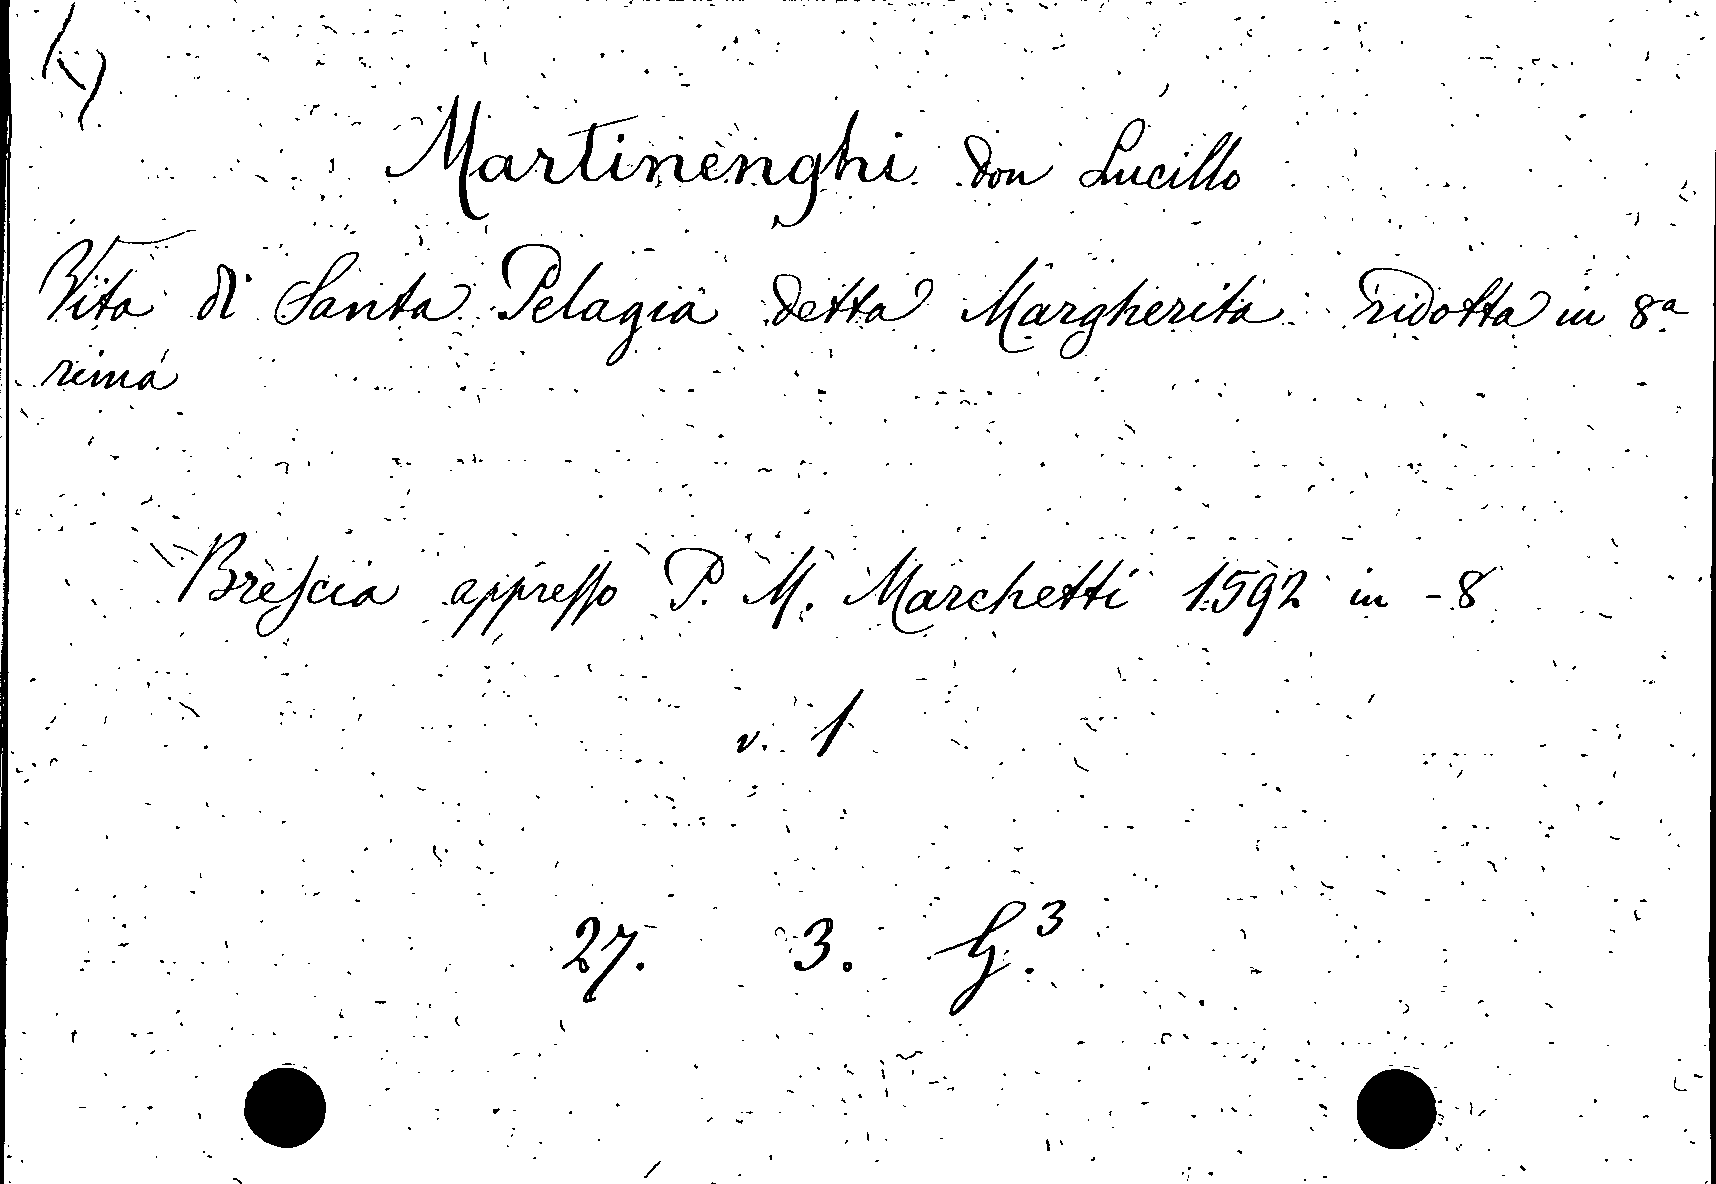 Martinenghi don Lucillo
Vita di Santa Pelagia detta Margherita ridotta in 8ª
rima
Brescia appresso P. M. Marchetti 1592 in - 8
v. 1
27. 3. G.³